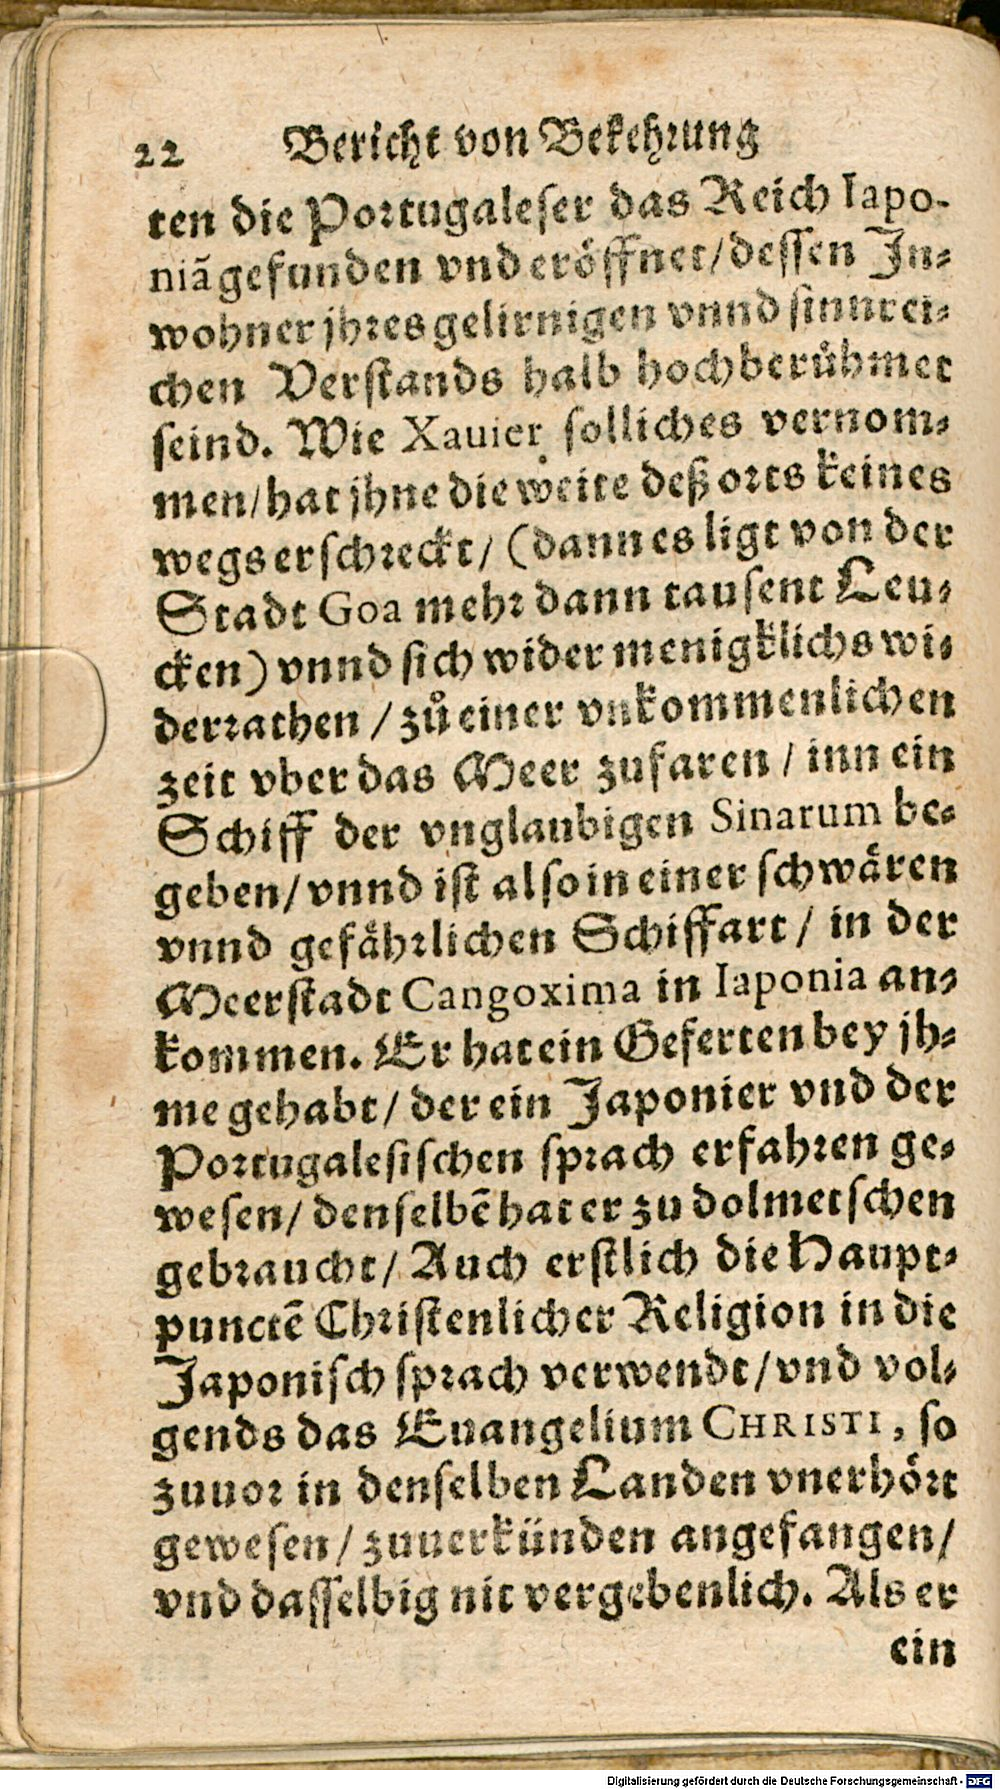 22 Bericht von Bekehrung
ten die Portugaleser das Reich Iapo-
niã gefunden vnd eröffnet/ dessen Jn-
wohner jhres gelirnigen vnnd sinnrei-
chen Verstands halb hochberůhmet
seind. Wie Xauier solliches vernom-
men/ hat jhne die weite deß orts keines
wegs erschreckt/ (dann es ligt von der
Stadt Goa mehr dann tausent Leu-
cken) vnnd sich wider menigklichs wi-
derrathen / zů einer vnkommenlichen
zeit vber das Meer zufaren / inn ein
Schiff der vnglaubigen Sinarum be-
geben/ vnnd ist also in einer schwären
vnnd gefährlichen Schiffart / in der
Meerstadt Cangoxima in Iaponia an-
kommen. Er hat ein Geferten bey jh-
me gehabt/ der ein Japonier vnd der
Portugalesischen sprach erfahren ge-
wesen/ denselbẽ hat er zu dolmetschen
gebraucht/ Auch erstlich die Haupt-
punctẽ Christenlicher Religion in die
Japonisch sprach verwendt/ vnd vol-
gends das Euangelium CHRISTI, so
zuuor in denselben Landen vnerhört
gewesen/ zuuerkünden angefangen/
vnd dasselbig nit vergebenlich. Als er
ein
Digitalisierung gefördert durch die Deutsche Forschungsgemeinschaft - DFG